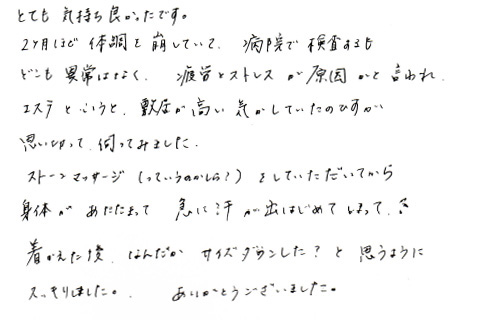 とても 気持ち良かったです。
2ヶ月ほど 体調を崩していて、病院で検査するも
どこも異常はなく、疲労とストレスが原因かと言われ、
エステというと、敷居が高い気がしていたのですが
思い切って、伺ってみました。
ストーンマッサージ(っていうのかしら?)をしていただいてから
身体があたたまって 急に汗が出はじめてしまって、
着がえた後、なんだか サイズダウンした?と 思うように
スッキリしました。 ありがとうございました。